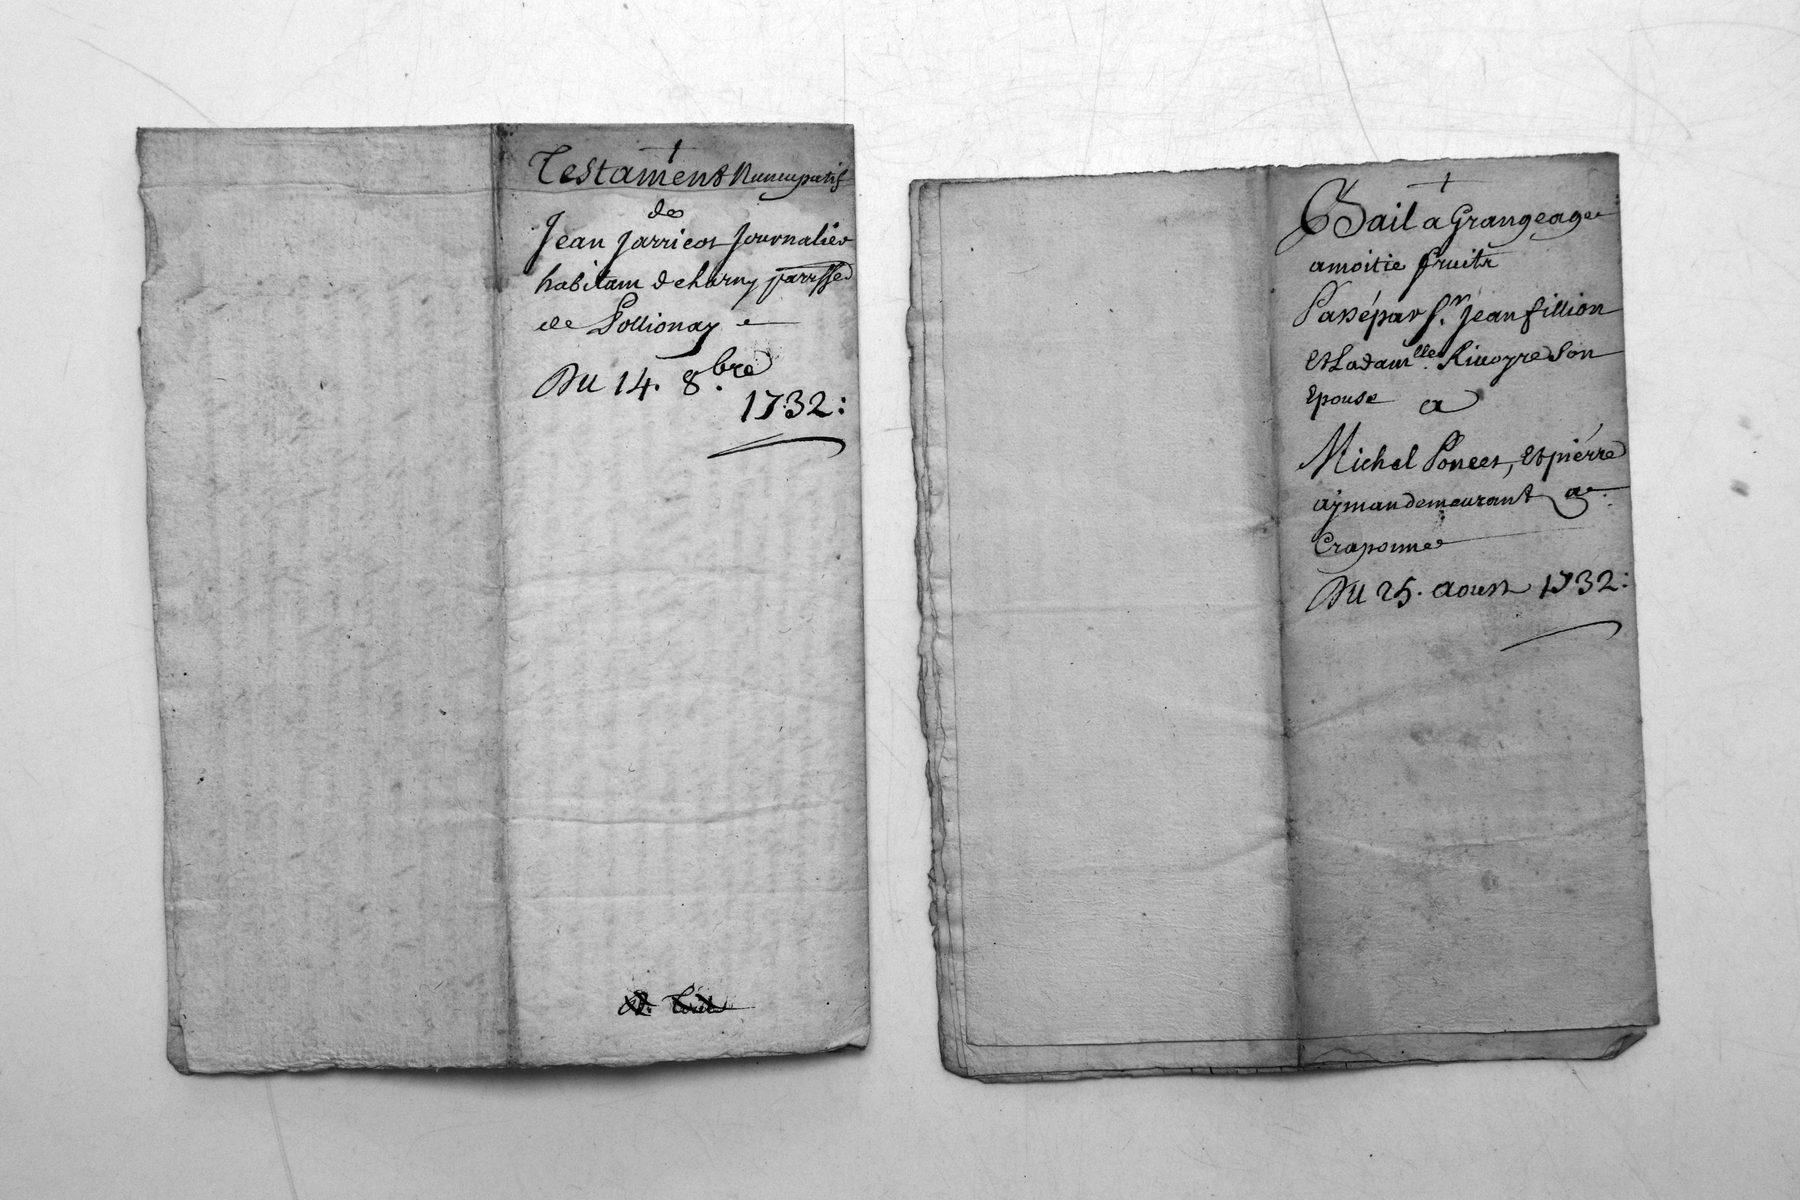 Testament Nuncupatif
de
Jean Jarricot Journalier
habitant de charny parisse
de Pollionay
Du 14. 8.bre
1732:
Bail a Grangeage
amoitie fruits
Passé par Sr. Jean fillion
Et La dam.lle Rivoyre Son
Epouse a
Michel Poncet, Et piérre
ayman demeurant a
Craponne
Du 25. aoust 1732: